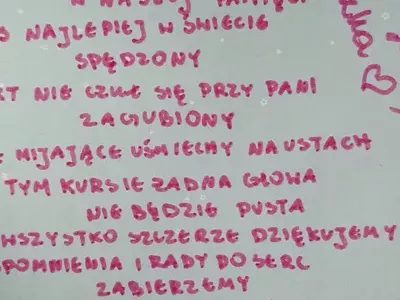 W NASZEJ PAMIĘCI
NAJLEPIEJ W ŚWIECIE
SPĘDZONY
NIE CZUŁ SIĘ PRZY PANI
ZAGUBIONY
MIJAJĄCE UŚMIECHY NA USTACH
TYM KURSIE ŻADNA GŁOWA
NIE BĘDZIE PUSTA
WSZYSTKO SZCZERZE DZIĘKUJEMY
I RADY DO SERC
ZABIERZEMY